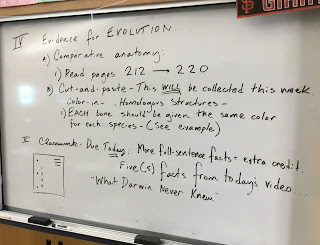 GIANTS
IV Evidence for EVOLUTION...
A) Comparative anatomy:
1) Read pages 212 → 220
B) Cut-and-paste - This WILL be collected this week.
Color-in - Homologous Structures -
1) EACH bone should be given the same color
for each species - (See example)
V Classwork - Due Today: More full-sentence facts - extra credit.
Five(5) facts from today's video...
"What Darwin Never Knew"